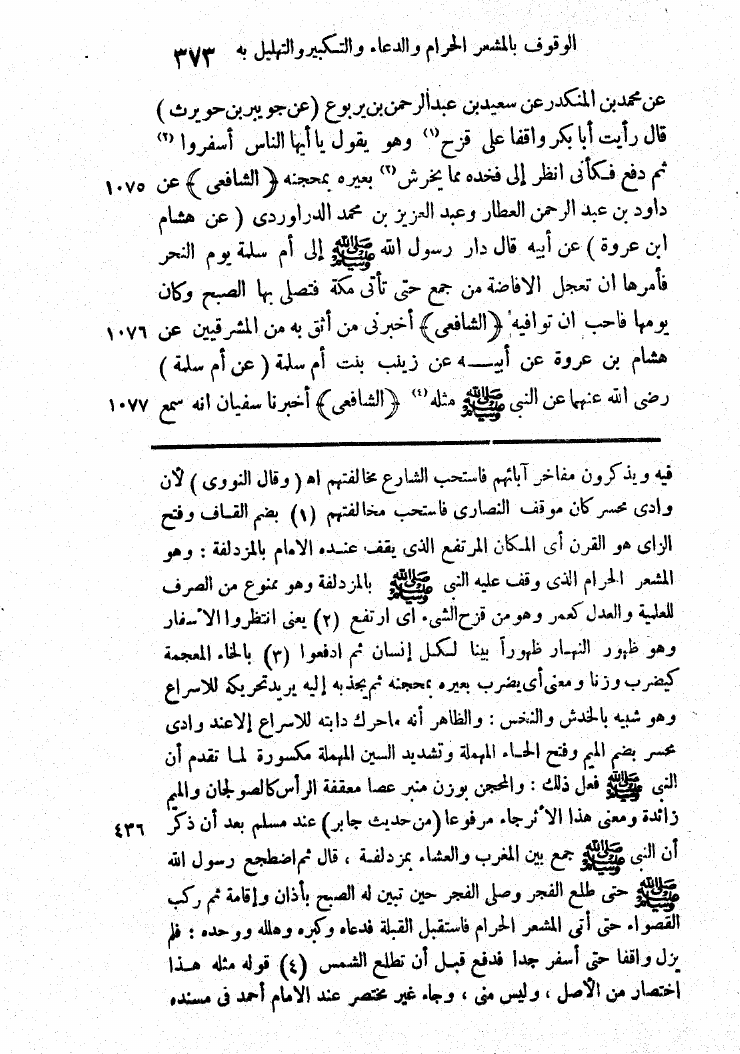 الوقوف بالمشعر الحرام والدعاء والتكبير والتهليل به ٣٧٣
عن محمد بن المنكدر عن سعيد بن عبد الرحمن بن يربوع (عن جويبر بن حويرث)
قال رأيت أبا بكر واقفا على قزح (١) وهو يقول يا أيها الناس أسفروا (٢)
ثم دفع فكأنى انظر إلى فخذه مما يخرش (٣) بعيره بمحجنه ﴿الشافعى﴾ عن ١٠٧٥
داود بن عبد الرحمن العطار وعبد العزيز بن محمد الدراوردى (عن هشام
ابن عروة) عن أبيه قال دار رسول الله ﷺ إلى أم سلمة يوم النحر
فأمرها ان تعجل الافاضة من جمع حتى تأتى مكة فتصلى بها الصبح وكان
يومها فاحب ان توافيه ﴿الشافعى﴾ أخبرنى من أثق به من المشرقيين عن ١٠٧٦
هشام بن عروة عن أبيـــه عن زينب بنت أم سلمة (عن أم سلمة)
رضى الله عنهما عن النبى ﷺ مثله (٤) ﴿الشافعى﴾ أخبرنا سفيان انه سمع ١٠٧٧
فيه ويذكرون مفاخر آبائهم فاستحب الشارع مخالفتهم اه (وقال النووى) لأن
وادى محسر كان موقف النصارى فاستحب مخالفتهم (١) بضم القاف وفتح
الزاى هو القرن أى المكان المرتفع الذى يقف عنده الامام بالمزدلفة : وهو
المشعر الحرام الذى وقف عليه النبى ﷺ بالمزدلفة وهو ممنوع من الصرف
للعلمية والعدل كعمر وهو من قزح الشىء اى ارتفع (٢) يعنى انتظروا الأسفار
وهو ظهور النهار ظهوراً بينا لكل إنسان ثم ادفعوا (٣) بالخاء المعجمة
كيضرب وزنا ومعنى أى يضرب بعيره بمحجنه ثم يجذبه إليه يريد تحريكه للاسراع
وهو شبيه بالخدش والنخس : والظاهر أنه ماحرك دابته للاسراع إلا عند وادى
محسر بضم الميم وفتح الحاء المهملة وتشديد السين المهملة مكسورة لما تقدم أن
النبى ﷺ فعل ذلك : والمحجن بوزن منبر عصا معقفة الرأس كالصولجان والميم
زائدة ومعنى هذا الأثر جاء مرفوعا (من حديث جابر) عند مسلم بعد أن ذكر ٤٣٦
أن النبى ﷺ جمع بين المغرب والعشاء بمزدلفة ، قال ثم اضطجع رسول الله
ﷺ حتى طلع الفجر وصلى الفجر حين تبين له الصبح بأذان وإقامة ثم ركب
القصواء حتى أتى المشعر الحرام فاستقبل القبلة فدعاه وكبره وهلله ووحده : فلم
يزل واقفا حتى أسفر جدا فدفع قبل أن تطلع الشمس (٤) قوله مثله هذا
اختصار من الأصل ، وليس منى ، وجاء غير مختصر عند الامام أحمد فى مسنده